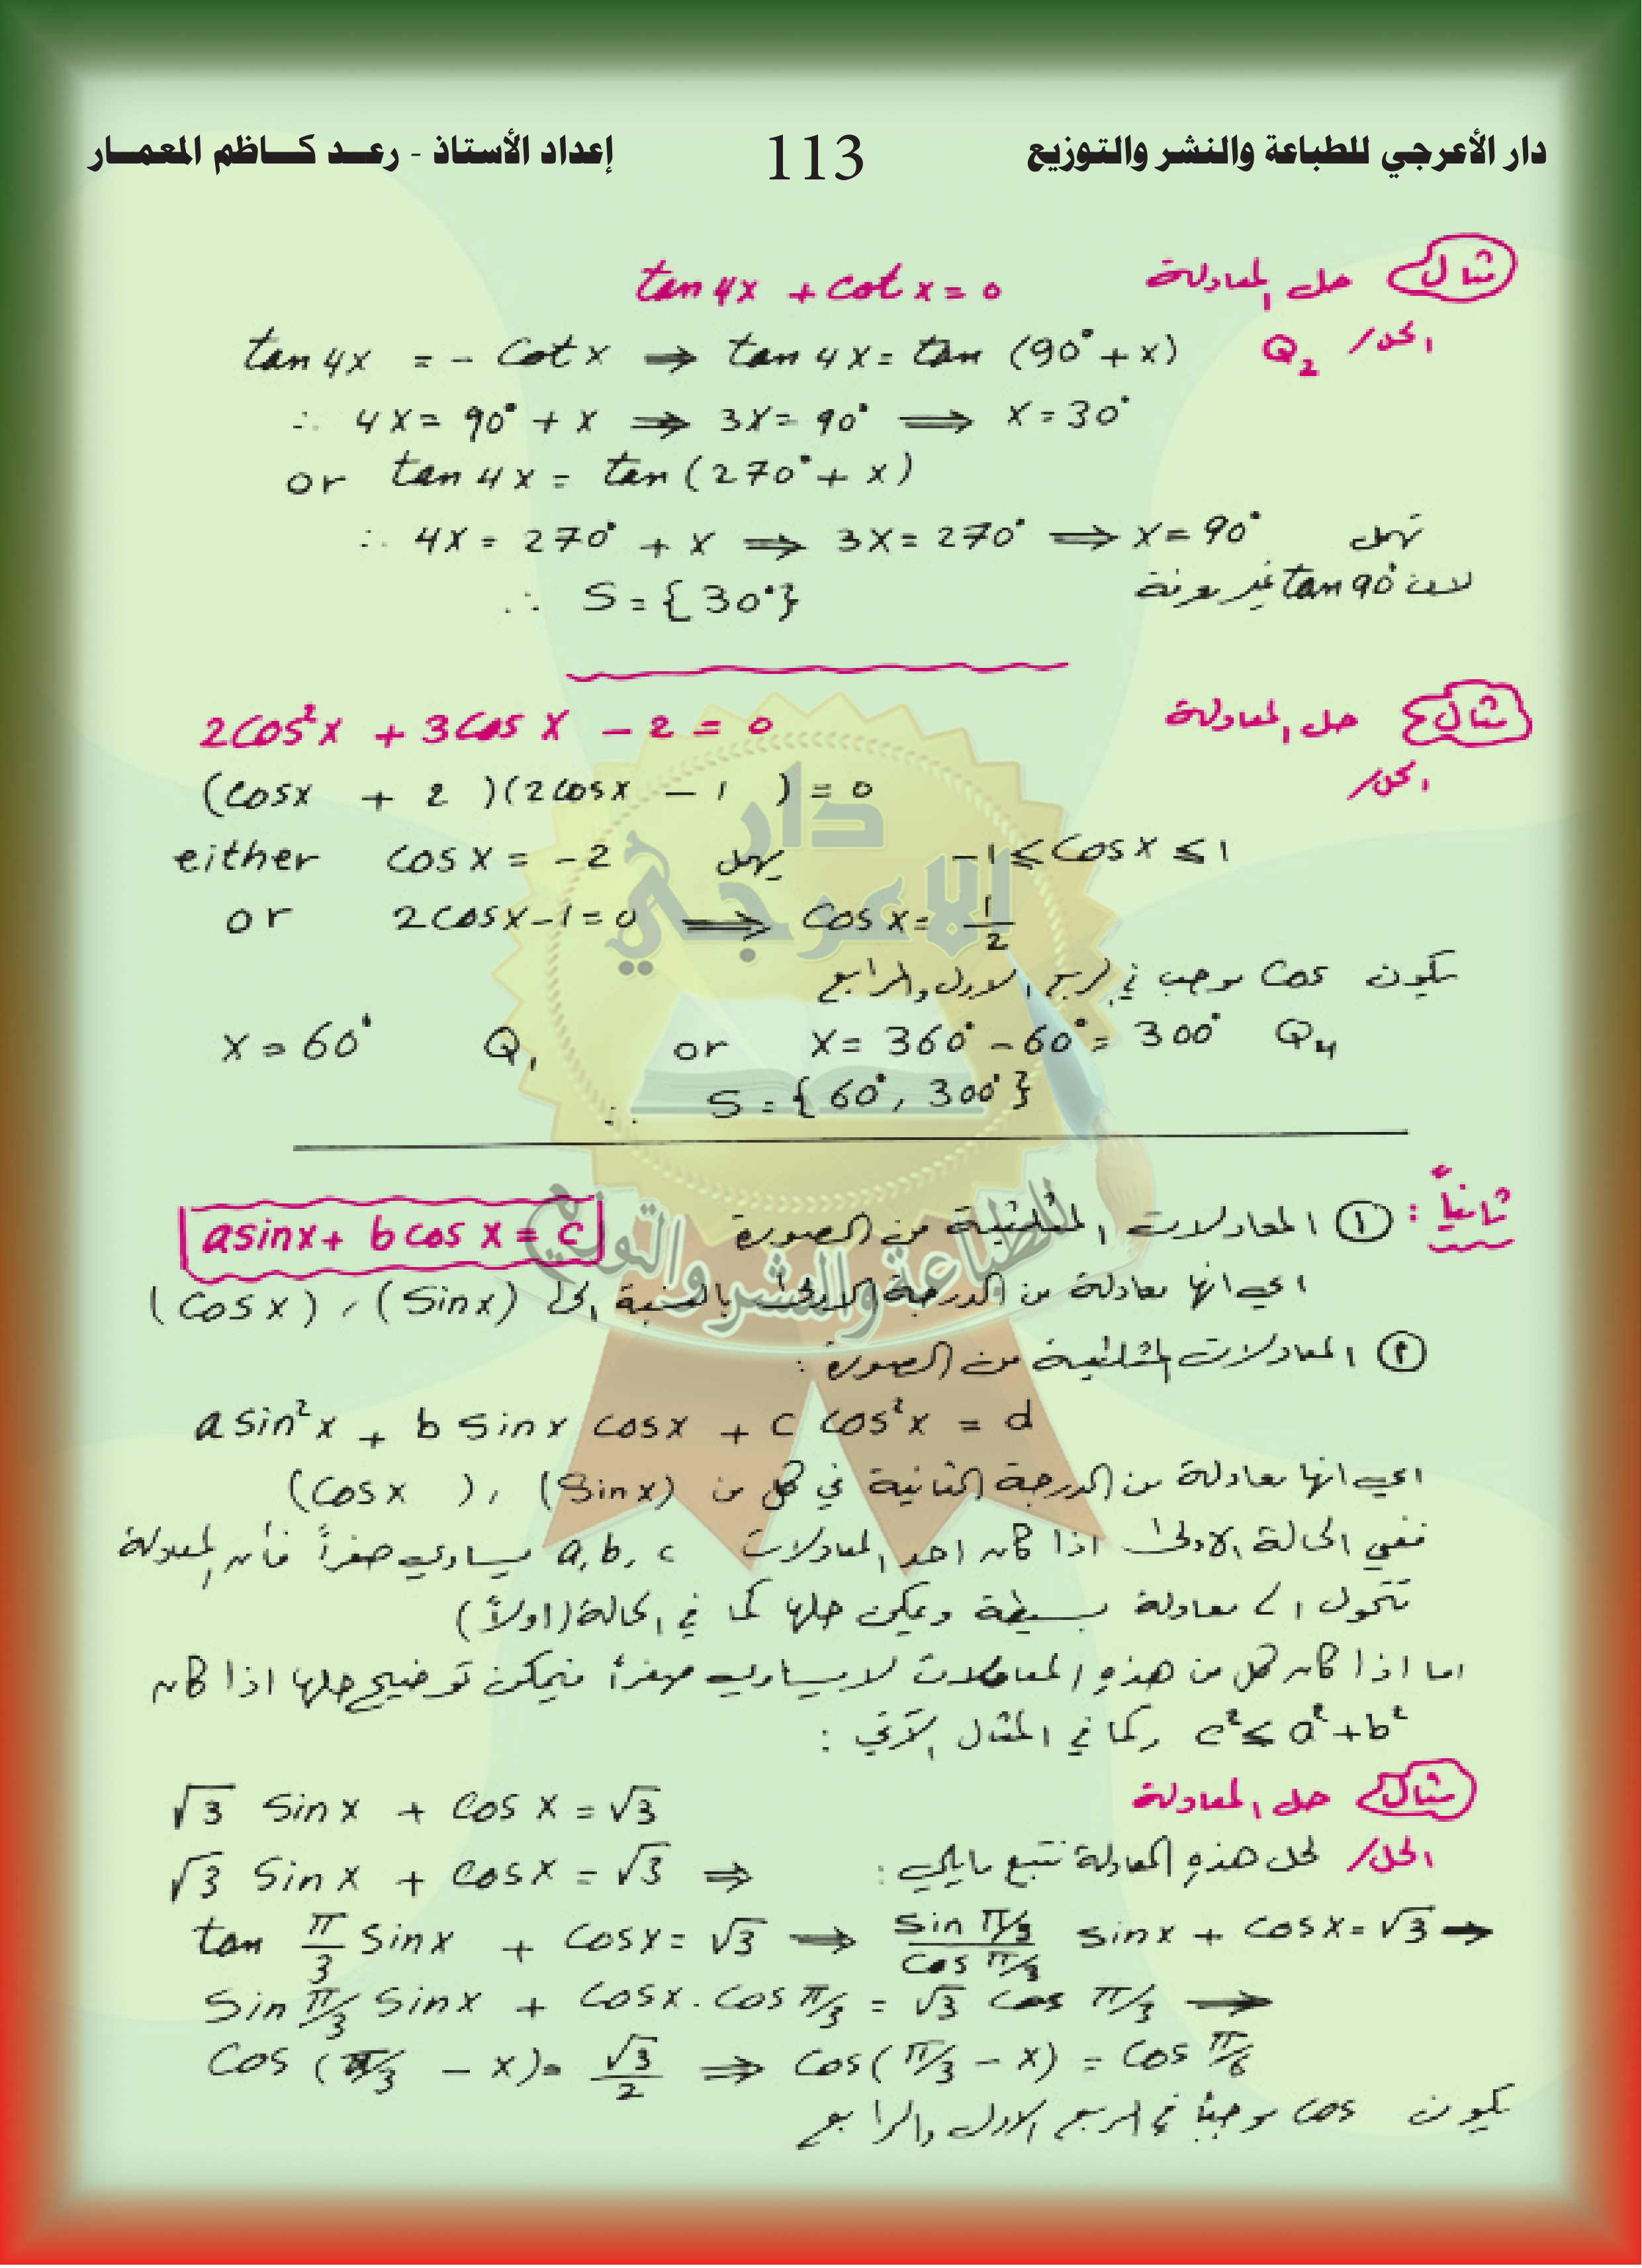 دار الأعرجي للطباعة والنشر والتوزيع 113 إعداد الأستاذ - رعد كاظم المعمار
مثال حل المعادلة tan 4x + cot x = 0
الحل/ Q₂ tan 4x = - cot x ⇒ tan 4x = tan (90° + x)
∴ 4x = 90° + x ⇒ 3x = 90° ⇒ x = 30°
or tan 4x = tan (270° + x)
∴ 4x = 270° + x ⇒ 3x = 270° ⇒ x = 90° تهمل
لان tan 90° غير معرفة
∴ S = {30°}
مثال 4 حل المعادلة 2cos²x + 3cos x - 2 = 0
الحل/ (cosx + 2)(2cosx - 1) = 0
either cos x = -2 يهمل -1 ≤ cos x ≤ 1
or 2cosx - 1 = 0 ⇒ cos x = 1/2
يكون cos موجب في الربع الاول والرابع
x = 60° Q₁ or x = 360° - 60° = 300° Q₄
∴ S = {60°, 300°}
ثانياً : ① المعادلات المثلثية من الصورة asinx + bcos x = c
اي انها معادلة من الدرجة الاولى بالنسبة الى (sinx) ، (cosx)
② المعادلات المثلثية من الصورة :
a sin²x + b sinx cosx + c cos²x = d
اي انها معادلة من الدرجة الثانية في كل من (sinx) ، (cosx)
ففي الحالة الاولى اذا كان احد المعادلات a, b, c يساوي صفراً فأن المعادلة
تتحول الى معادلة بسيطة ويمكن حلها كما في الحالة (اولاً)
اما اذا كان كل من هذه المعاملات لا يساوي صفراً فيمكن توضيح حلها اذا كان
c² ≤ a² + b² وكما في المثال الآتي :
مثال حل المعادلة √3 sinx + cos x = √3
الحل/ لحل هذه المعادلة نتبع مايلي : √3 sinx + cosx = √3 ⇒
tan π/3 sinx + cosx = √3 ⇒ sin π/3 / cos π/3 sinx + cosx = √3 ⇒
sin π/3 sinx + cosx . cos π/3 = √3 cos π/3 ⇒
cos (π/3 - x) = √3/2 ⇒ cos(π/3 - x) = cos π/6
يكون cos موجباً في الربع الاول والرابع
دار
الاعرجي
للطباعة والنشر والتوزيع